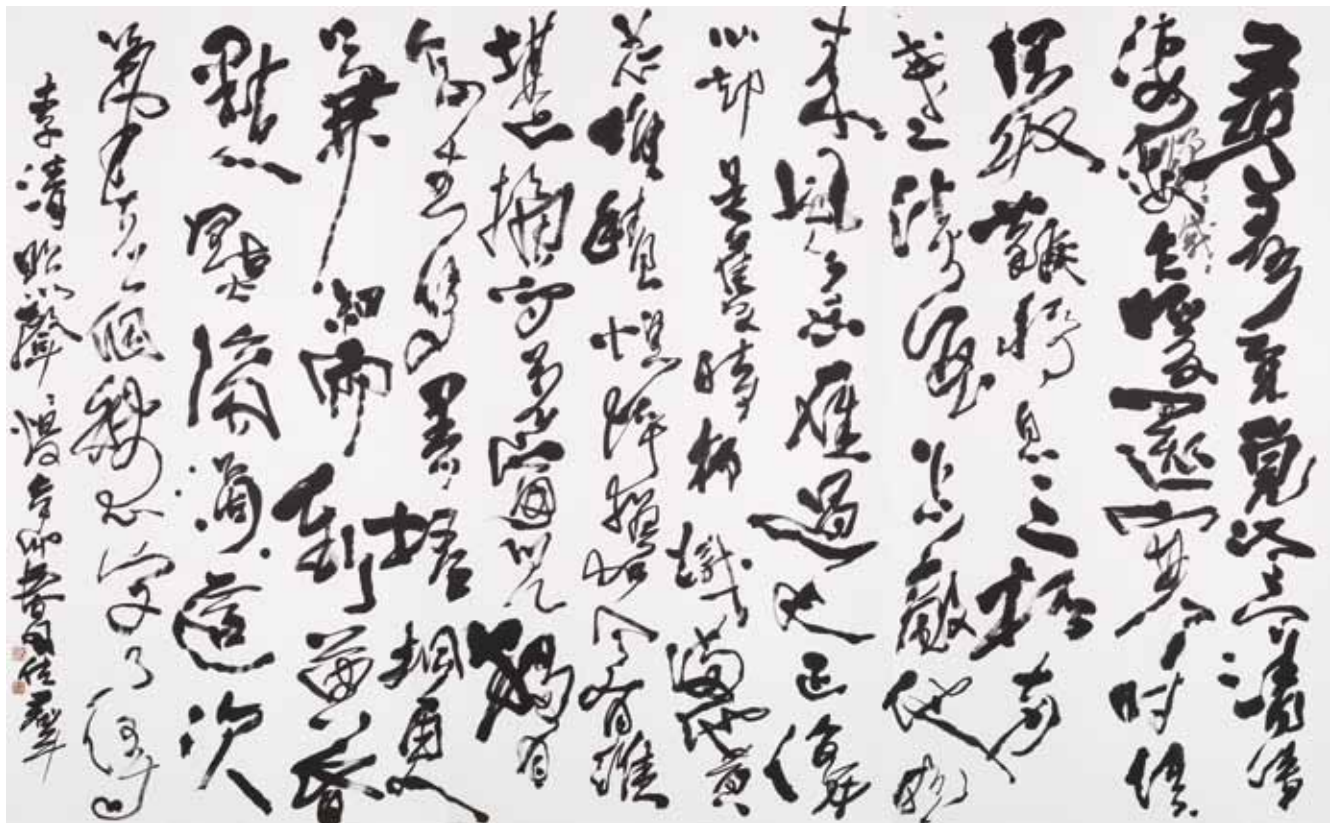 尋尋覓覓冷冷清清
淒淒慘慘戚戚乍暖還寒时候
最難將息三杯兩
盞淡酒怎敵他晚
來風急雁過也正傷
心却是舊時相識滿地黃
花堆積憔悴損如今有誰
堪摘守著窗兒獨自
怎生得黑梧桐更
兼細雨到黃昏
點點滴滴這次
第怎一個愁字了得
李清照聲聲慢